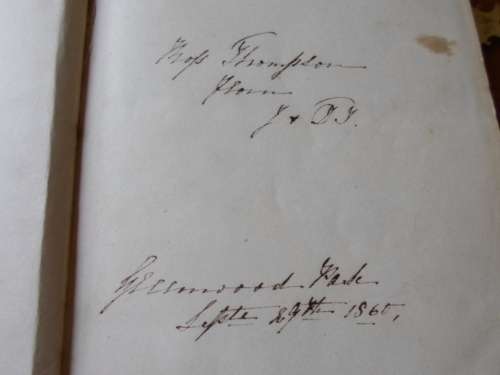 Ross Thompson
from
J & T J.
Greenwood Park
Septe 29th 1860,